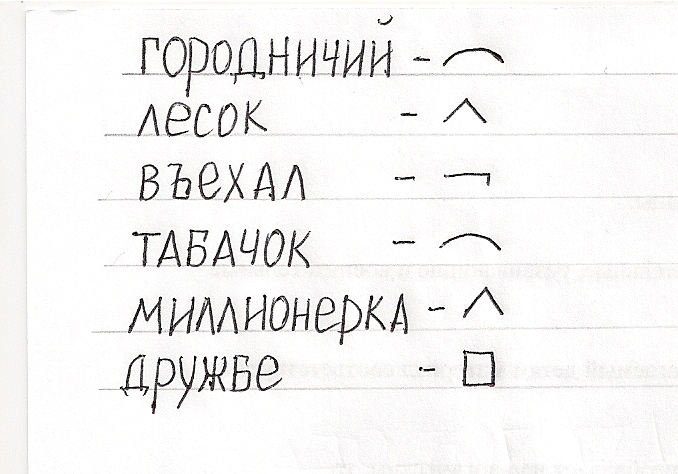 городничий - ⌒
лесок - ^
въехал - ¬
табачок - ⌒
миллионерка - ^
дружбе - □